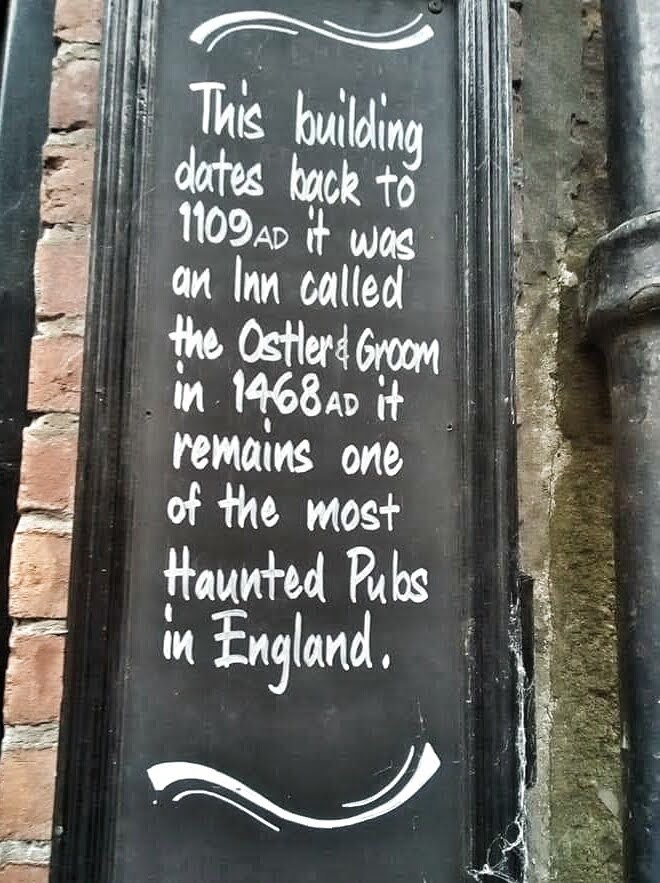 This building
dates back to
1109 AD it was
an Inn called
the Ostler & Groom
in 1468 AD it
remains one
of the most
Haunted Pubs
in England.